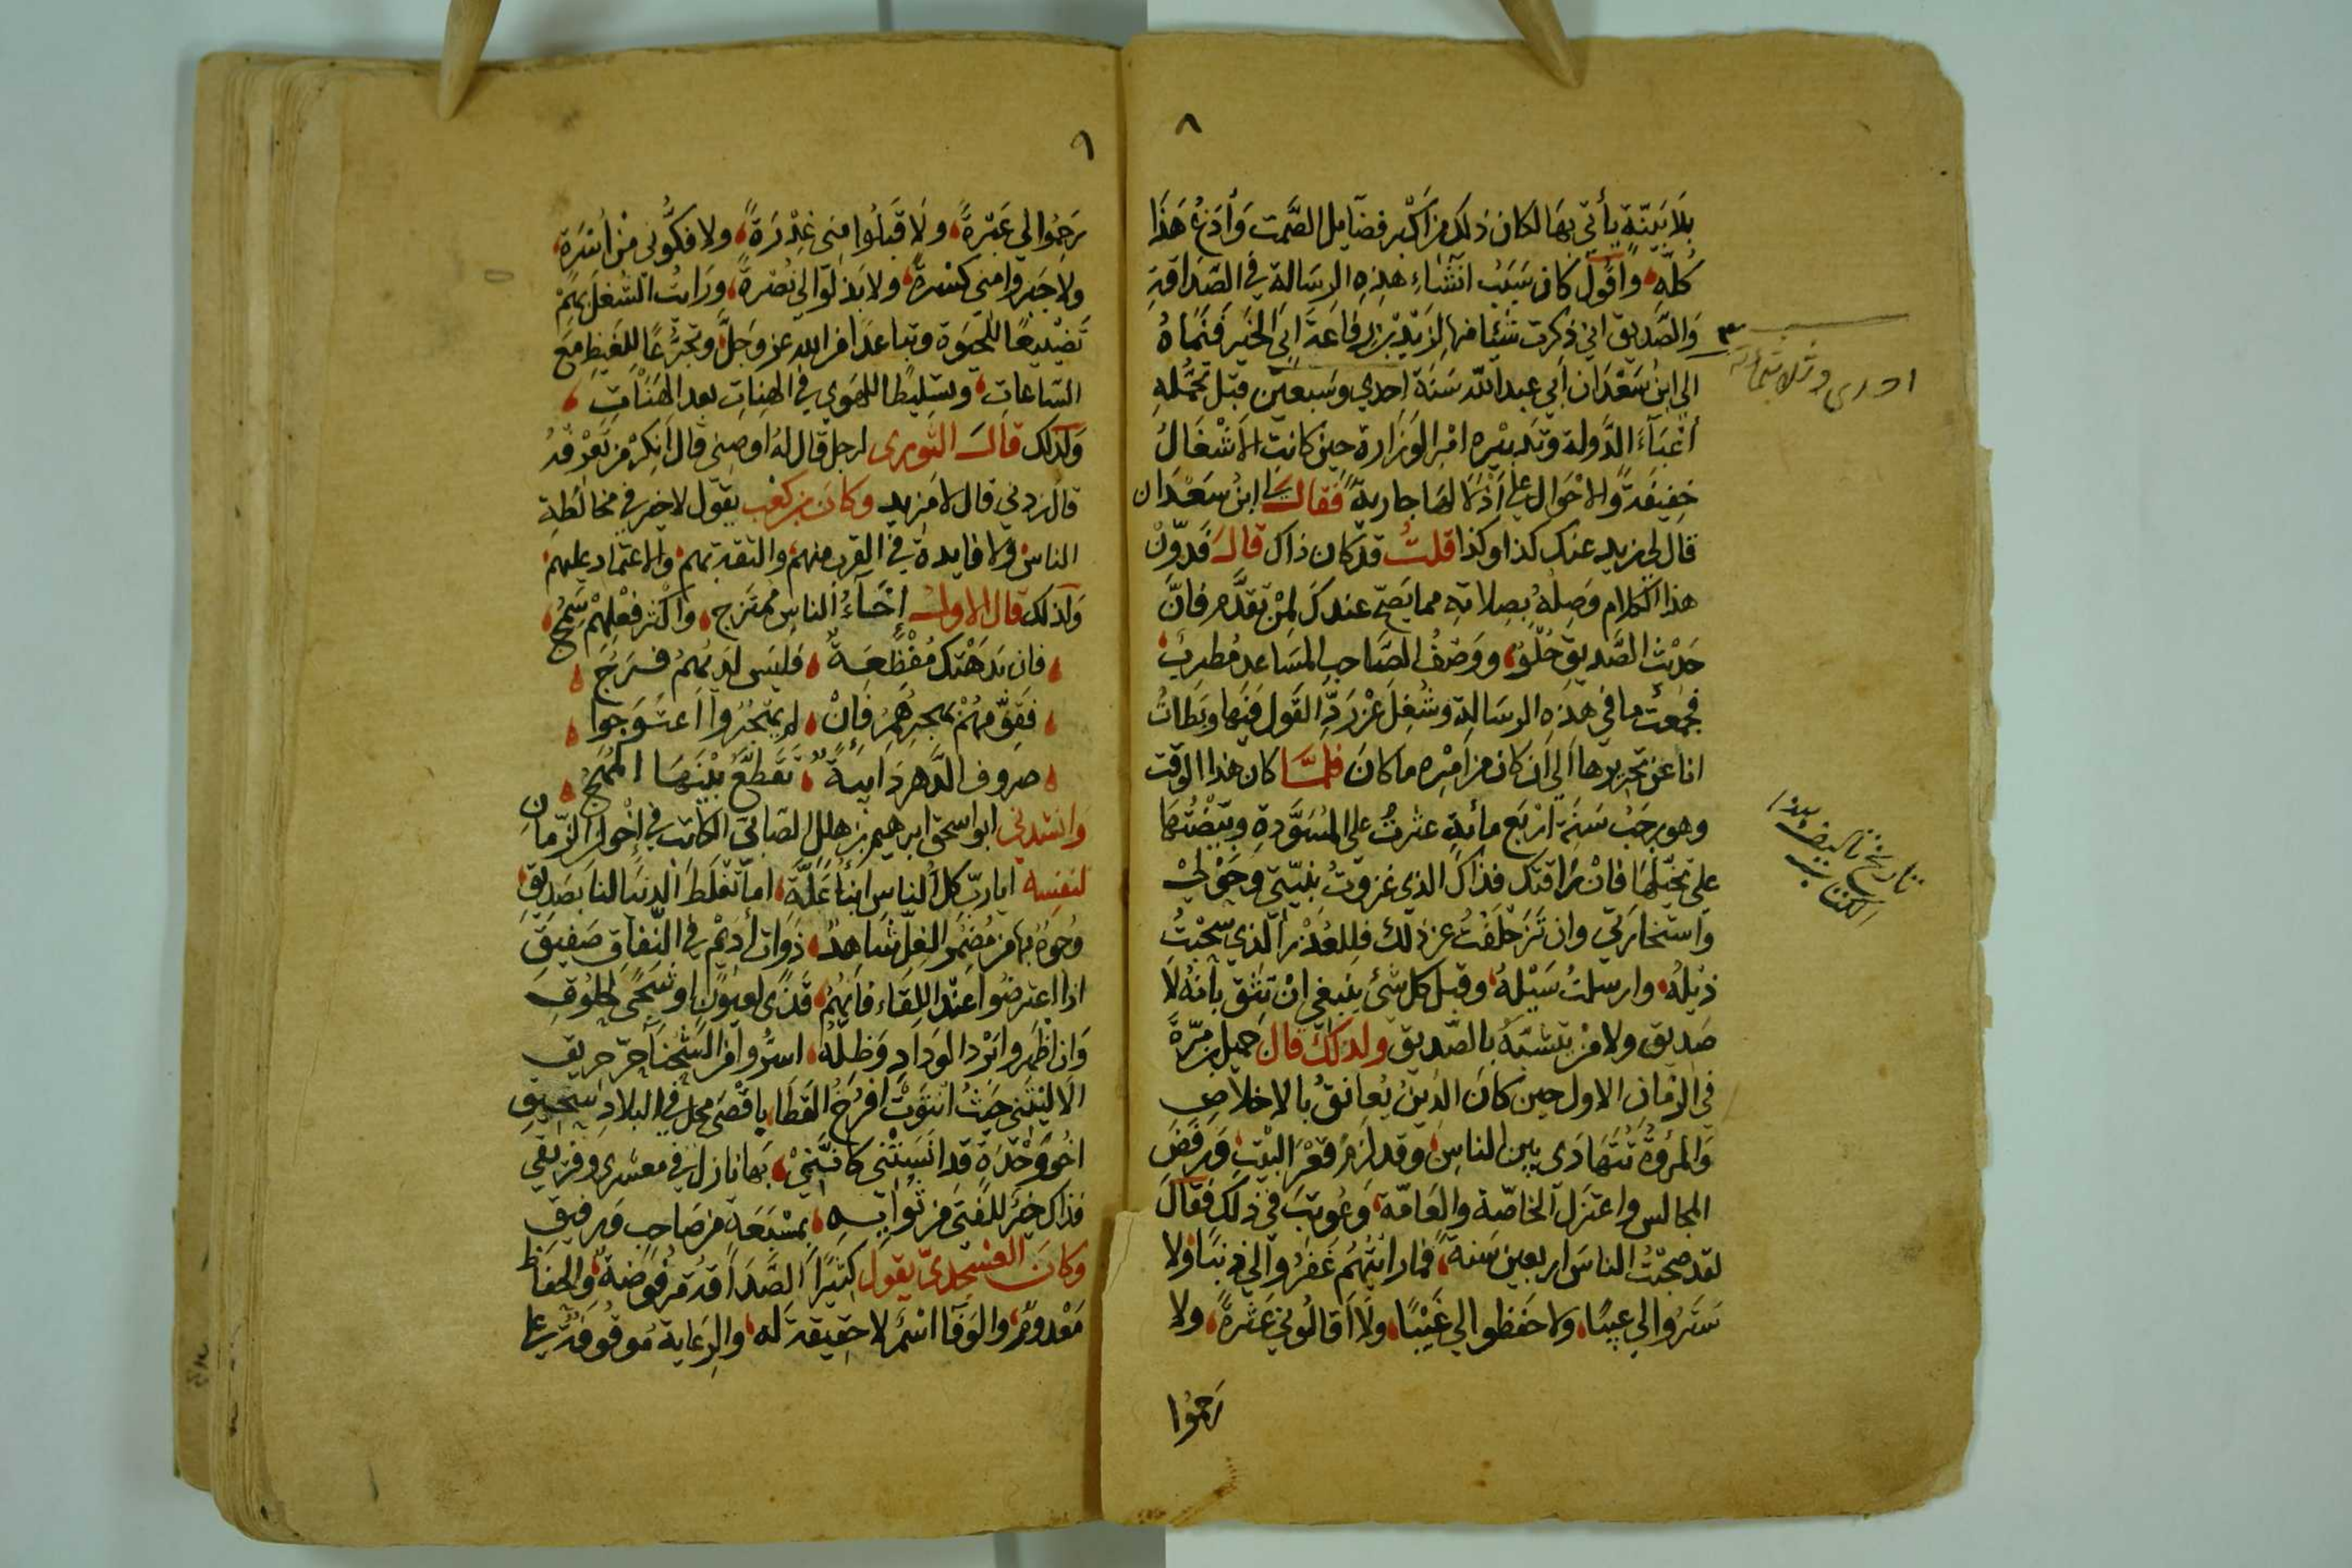 ٨
بلا بينة يأتي بها لكان ذلك من اكبر فضايل الصمت وأدع هذا
كله واقول كان سبب انشاء هذه الرسالة في الصداقة
والصديق اني ذكرت شيئا منها لزيد بن رفاعة ابي الخير فنماه
الي ابن سعدان ابي عبد الله سنة احدي وسبعين قبل تحمله
أعباء الدولة وتدبيره امر الوزارة حين كانت الاشغال
خفيفة والاحوال علي اذلالها جارية فقال ابن سعدان
قال لي زيد عنك كذا وكذا قلت قد كان ذاك قال فدون
هذا الكلام وصله بصلاته مما يصح عندك لمن تقدم فان
حديث الصديق حلو ووصف الصاحب المساعد مطرب
فجمعت ما في هذه الرسالة وشغل عن رد القول فيها وبطات
انا عن تحريرها الي ان كان من امره ما كان فلما كان هذا الوقت
وهو رجب سنة اربع مأية عثرت علي المسودة وبيضتها
علي تخيلها فان راقتك فذاك الذي غزوت بنيتي وحولي
واستخارتي وان تزحلفت عن ذلك فللعذر الذي سحبت
ذيله وارسلت سيله وقبل كل شئ ينبغي ان تثق بأنه لا
صديق ولا من يتشبه بالصديق ولذلك قال جميل بن مرة
في الزمان الاول حين كان الدين يعانق بالاخلاص
والمروة تتهادى بين الناس وقد لزم قعر البيت ورفض
المجالس واعتزل الخاصة والعامة وعوتب في ذلك فقال
لقد صحبت الناس اربعين سنة فما رايتهم غفروا لي ذنبا ولا
ستروا لي عيبا ولا حفظوا لي غيبا ولا أقالوني عثرة ولا
رحموا
احدى وثلاثمائة
تاريخ تاليف هذا
الكتاب
٩
رحموا لي عبرة ولا قبلوا مني عذرة ولا فكوني من أسرة
ولا جبروا مني كسرة ولا بذلوا لي نصرة ورايت الشغل بهم
تضييعا للحيوة وتباعدا من الله عز وجل وتجرعا للغيظ مع
الساعات وتسليطا للهوي في الهنات بعد الهنات
ولذلك قال الثوري لرجل قال له اوصني قال انكر من تعرفه
قال زدني قال لا مزيد وكان بن كعب يقول لا خير في مخالطة
الناس ولا فايدة في القرب منهم والثقة بهم والاعتماد عليهم
ولذلك قال الاول إخاء الناس ممتزج واكثر فعلهم سمج
فان بدهتك مفظعة فليس لديهم فرج
فقوم بهجرهم فان لم يهجروا اعتوجوا
صروف الدهر دايبة تقطع بينها المهج
وانشدني ابو اسحق ابرهيم بن هلل الصابي الكاتب في إخوان الزمان
لنفسه ايا رب كل الناس ابناء علة اما تغلط الدنيا لنا بصديق
وجوه بها من مضمر الغل شاهد ذوات أديم في النفاق صفيق
اذا اعترضوا عند اللقاء فانهم قذى لعيون او شجى لحلوق
وان اظهروا برد الوداد وظله اسروا من الشحنا حر حريق
الا ليتني حيث انتوت افرخ القطا باقصى محل في البلاد سحيق
اخو وحدة قد انستني كانني بها نازل في معشري وفريقي
فذاك خير للفتى من ثوايه بمسبعة من صاحب ورفيق
وكان العسجدي يقول كثيرا الصداقة مرفوضة والحفاظ
معدوم والوفا اسم لا حقيقة له والرعاية موقوفة علي